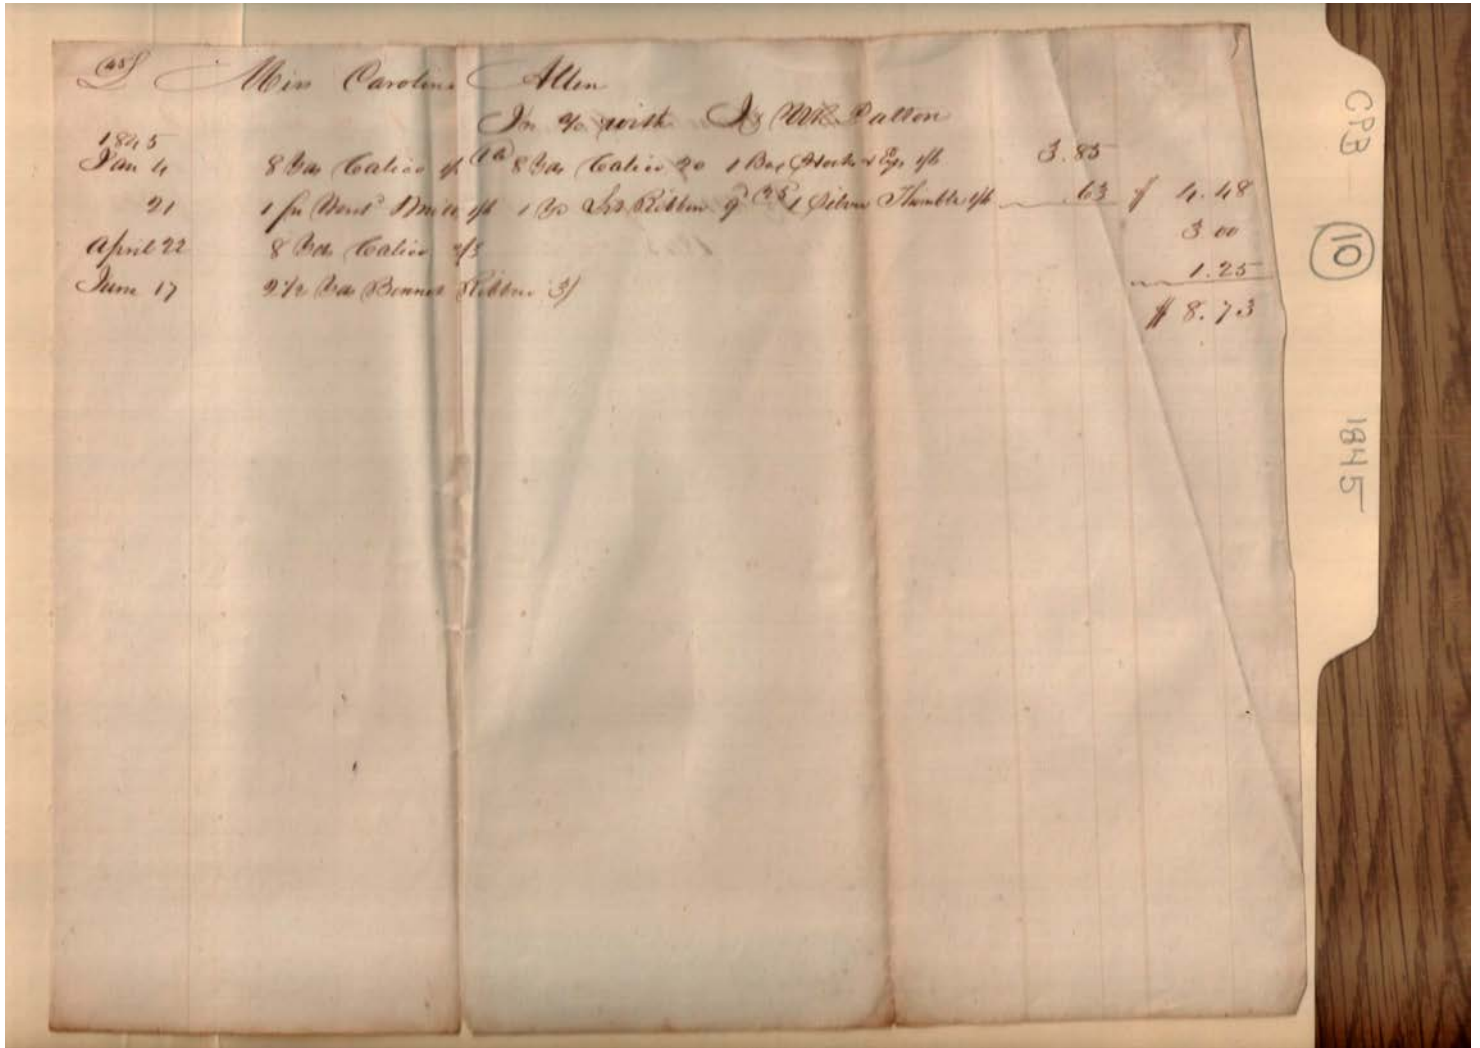 45
Miss Caroline Allen
In a/c with Js McDalton
1845
Jan 4 8 Yds Calico 1/6 8 Yds Calico 20 1 Box Hooks & Eyes 1/6 3.85
21 1 pr Mitts 1/6 1 Yd Ribbon 9d 1 Silver Thimble 1/6 63 $ 4.48
April 22 8 Yds Calico 2/3 3 00
June 17 2 1/2 Yds Bonnet Ribbon 3/ 1.25
$ 8.73
CPB 10 1845